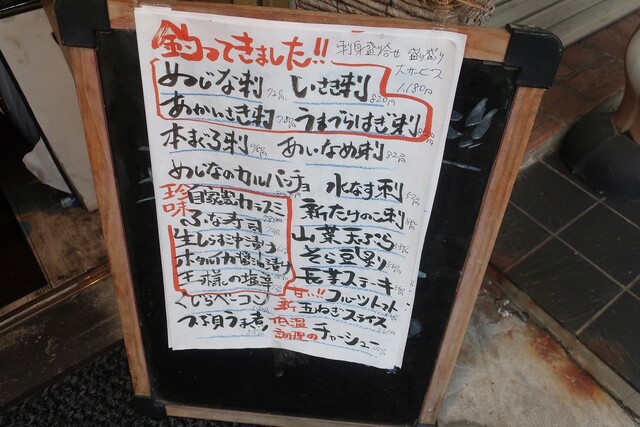 釣ってきました!!
刺身盛り合せ 盛り盛り
大サービス
1,180円
めじな刺
いさき刺 820円
あかいさき刺 780円
うまづらはぎ刺
本まぐろ刺 980円
あいなめ刺 820円
めじなのカルパッチョ
水なす刺
珍味
自家製カラスミ
新たけのこ刺
ふな寿司
山菜天ぷら
生しらす汁漬け
そら豆
ホタルイカ醤油漬け
長芋ステーキ
の塩辛
甘い!! フルーツトマト
くじらベーコン
新 玉ねぎスライス
つぶ貝うま煮
低温調理のチャーシュー